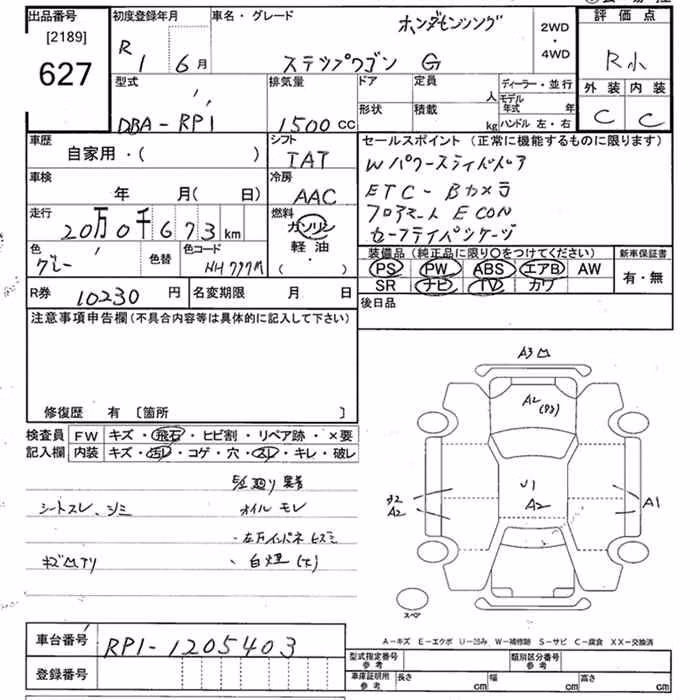 出品番号 初度登録年月 車名・グレード ホンダセンシング 評価点
[2189]
627
R 1 6月 ステップワゴン G 2WD・4WD R小
型式 排気量 ドア 定員 人 ディーラー・並行 外装 内装
DBA-RP1 1500cc 形状 積載 kg モデル年式 年 ハンドル 左・右 C C
車歴 シフト セールスポイント (正常に機能するものに限ります)
自家用・( ) IAT Wパワースライドドア
車検 冷房 ETC-Bカメラ
年 月( 日) AAC フロアマット ECON
走行 燃料 セーフティパッケージ
20万0千673km ガソリン
色 色替 色コード 軽油 装備品 (純正品に限り○をつけてください) 新車保証書
グレー NH797M ・( ) PS PW ABS エアB AW 有・無
SR ナビ TV カワ
R券 10230円 名変期限 月 日 後日品
注意事項申告欄 (不具合内容等は具体的に記入して下さい)
修復歴 有 〔箇所 〕
検査員 FW キズ・飛石・ヒビ割・リペア跡・×要
記入欄 内装 キズ・汚レ・コゲ・穴・スレ・キレ・破レ
シートスレ、シミ オイルモレ
キズ凹アリ ・白煙(大)
A3凹
A2
U1
A2
A2
A1
スペア
A-キズ E-エクボ U-凹み W-補修跡 S-サビ C-腐食 XX-交換済
車台番号 RP1-1205403
型式指定番号 参考 類別区分番号 参考
登録番号
車庫証明用 参考 長さ cm 幅 cm 高さ cm